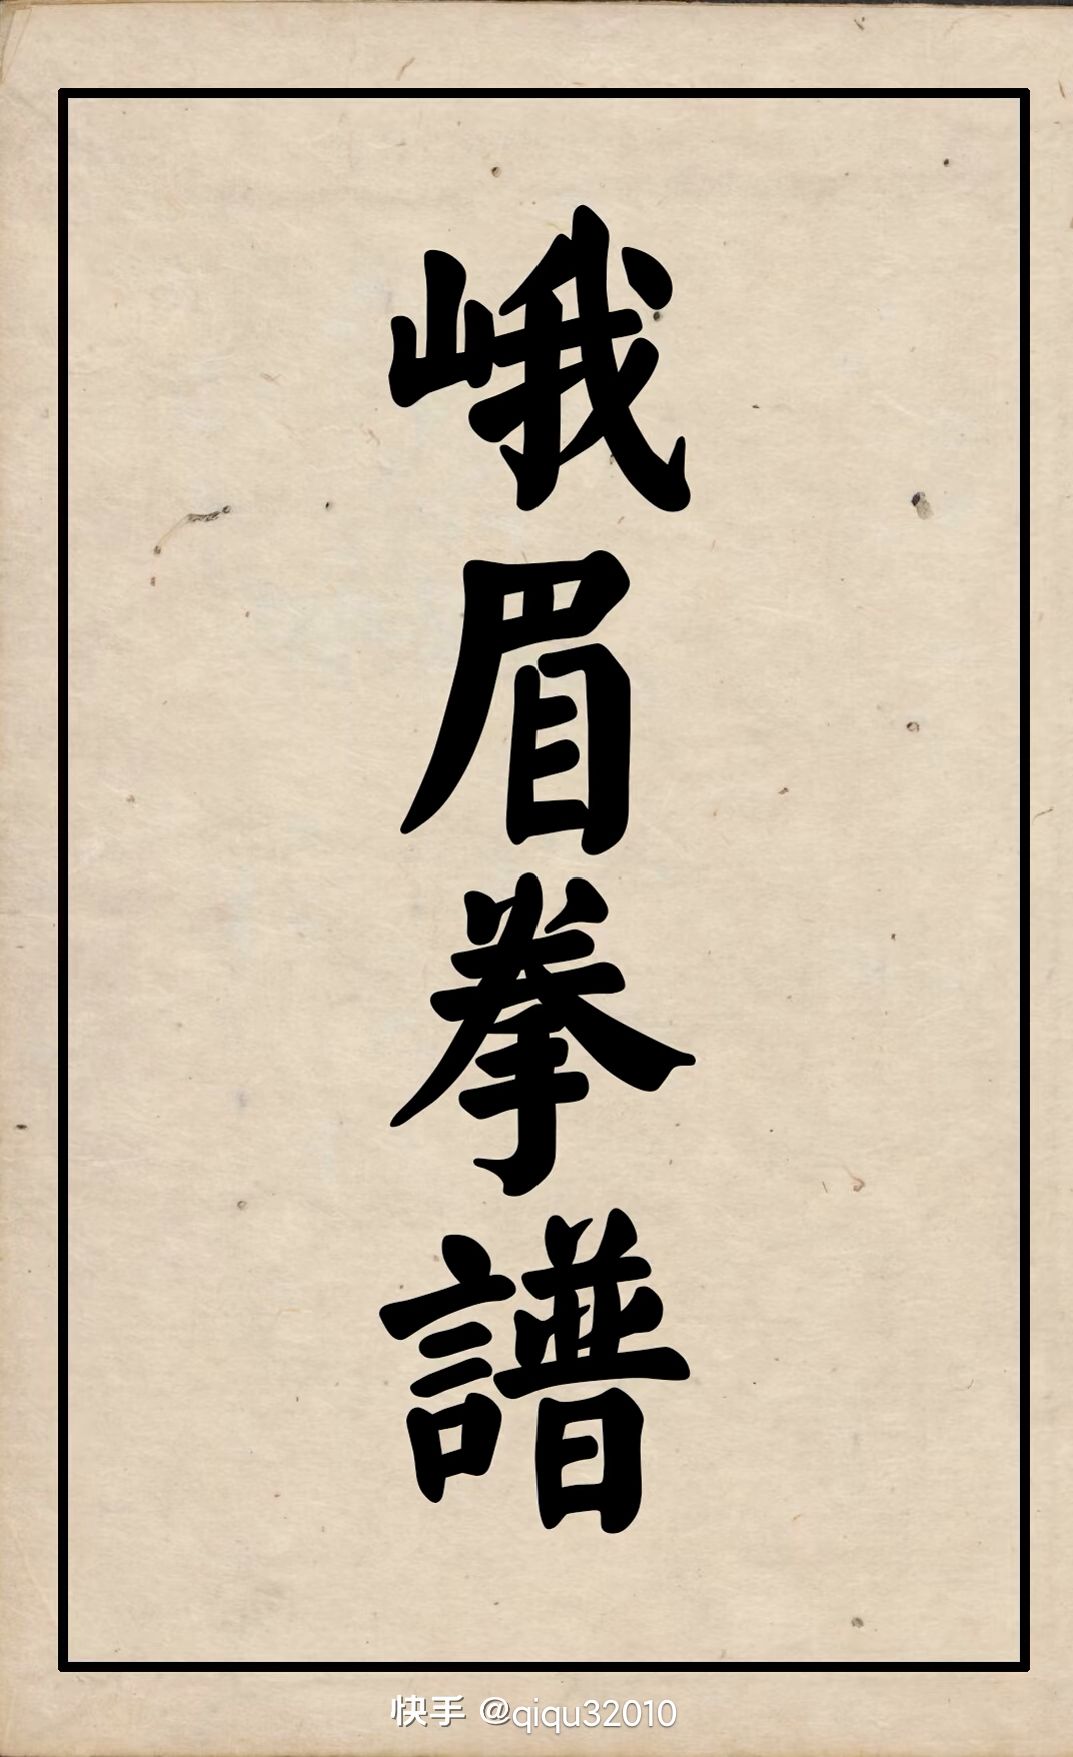 峨眉拳譜
快手 @qiqu32010